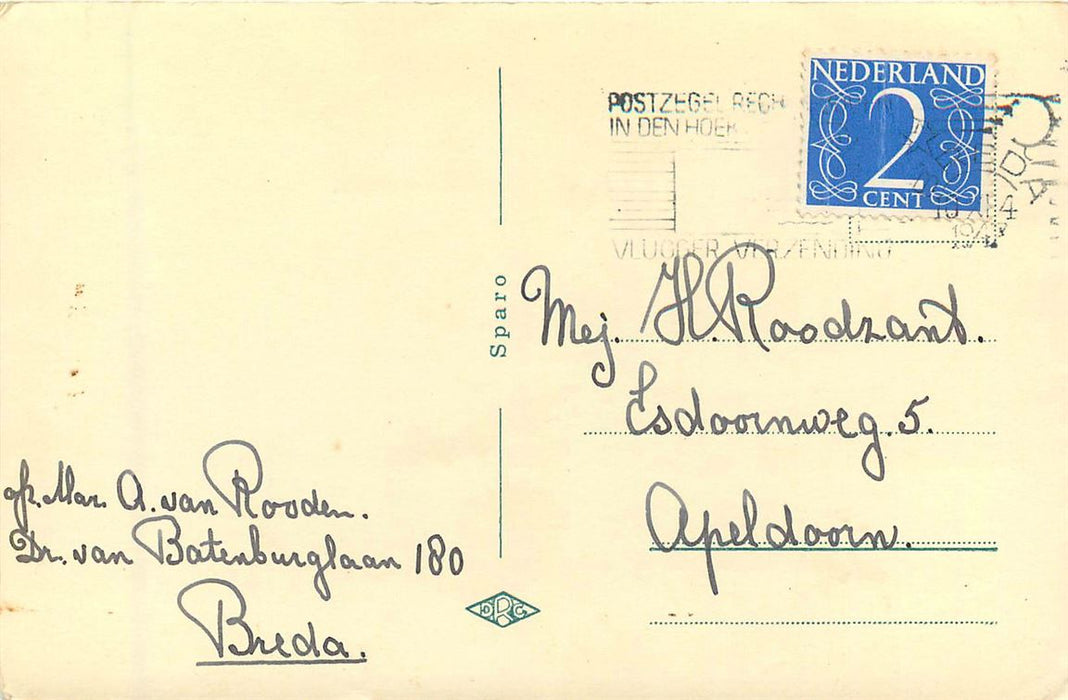 POSTZEGEL RECH
IN DEN HOEK
VLUGGER VERZENDING
NEDERLAND
2
CENT
Sparo
Mej. H. Roodzant.
Esdoornweg. 5.
Apeldoorn.
A. van Rooden.
Dr. van Batenburglaan 180
Breda.
DRC